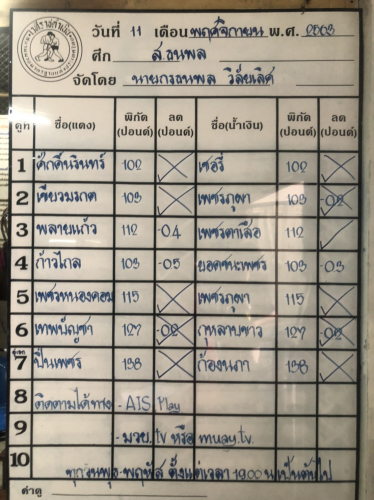 วันที่ 11 เดือน พฤศจิกายน พ.ศ. 2563
ศึก ส.ธนพล
จัดโดย นายกรธนพล วิสัยเลิศ
คู่ที่ ชื่อ(แดง) พิกัด (ปอนด์) ลด (ปอนด์) ชื่อ(น้ำเงิน) พิกัด (ปอนด์) ลด (ปอนด์)
1 ศักดิ์นรินทร์ 102 เชอรี่ 102
2 เขียวมรกต 103 เพชรภูผา 103 -02
3 พลายแก้ว 112 -04 112
4 ก้าวไกล 103 -05 ยอดชนะเพชร 103 -03
5 เพชรหนองคอม 115 เพชรภูผา 115
6 เทพบัญชา 127 -02 กุหลาบขาว 127 -02
7 ปืนเพชร 138 ก้องนภา 138
8 ติดตามได้ทาง - AIS Play
9 - มวย.tv หรือ muay.tv
10 ทุกวันพุธ-พฤหัส ตั้งแต่เวลา 18.00 น เป็นต้นไป
ค่าดู